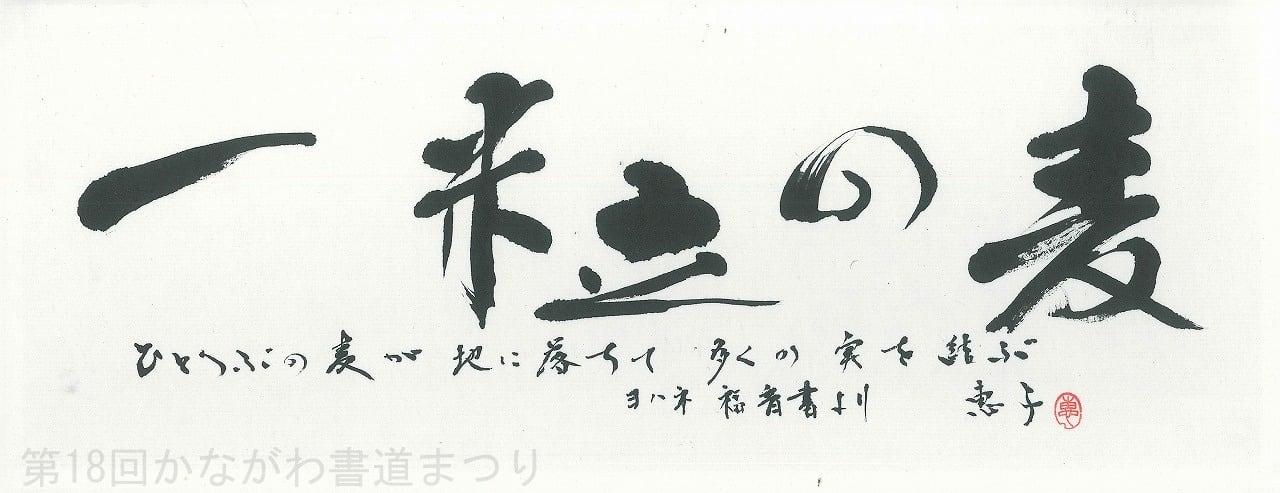 一粒の麦
ひとつぶの麦が 地に落ちて 多くの 実を結ぶ
ヨハネ 福音書より 恵子
第18回かながわ書道まつり